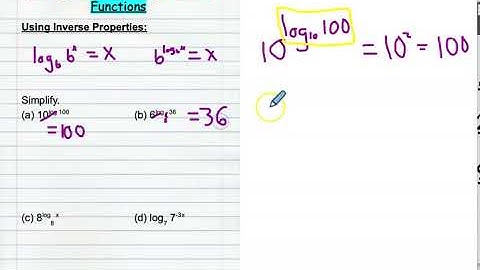 Functions
Using Inverse Properties:
log_b b^x = x   b^(log_b x) = x
Simplify.
(a) 10^(log 100)   (b) 6^(log_6 36) = 36
= 100
(c) 8^(log_8 x)   (d) log_7 7^(-3x)
10^(log_10 100) = 10^2 = 100